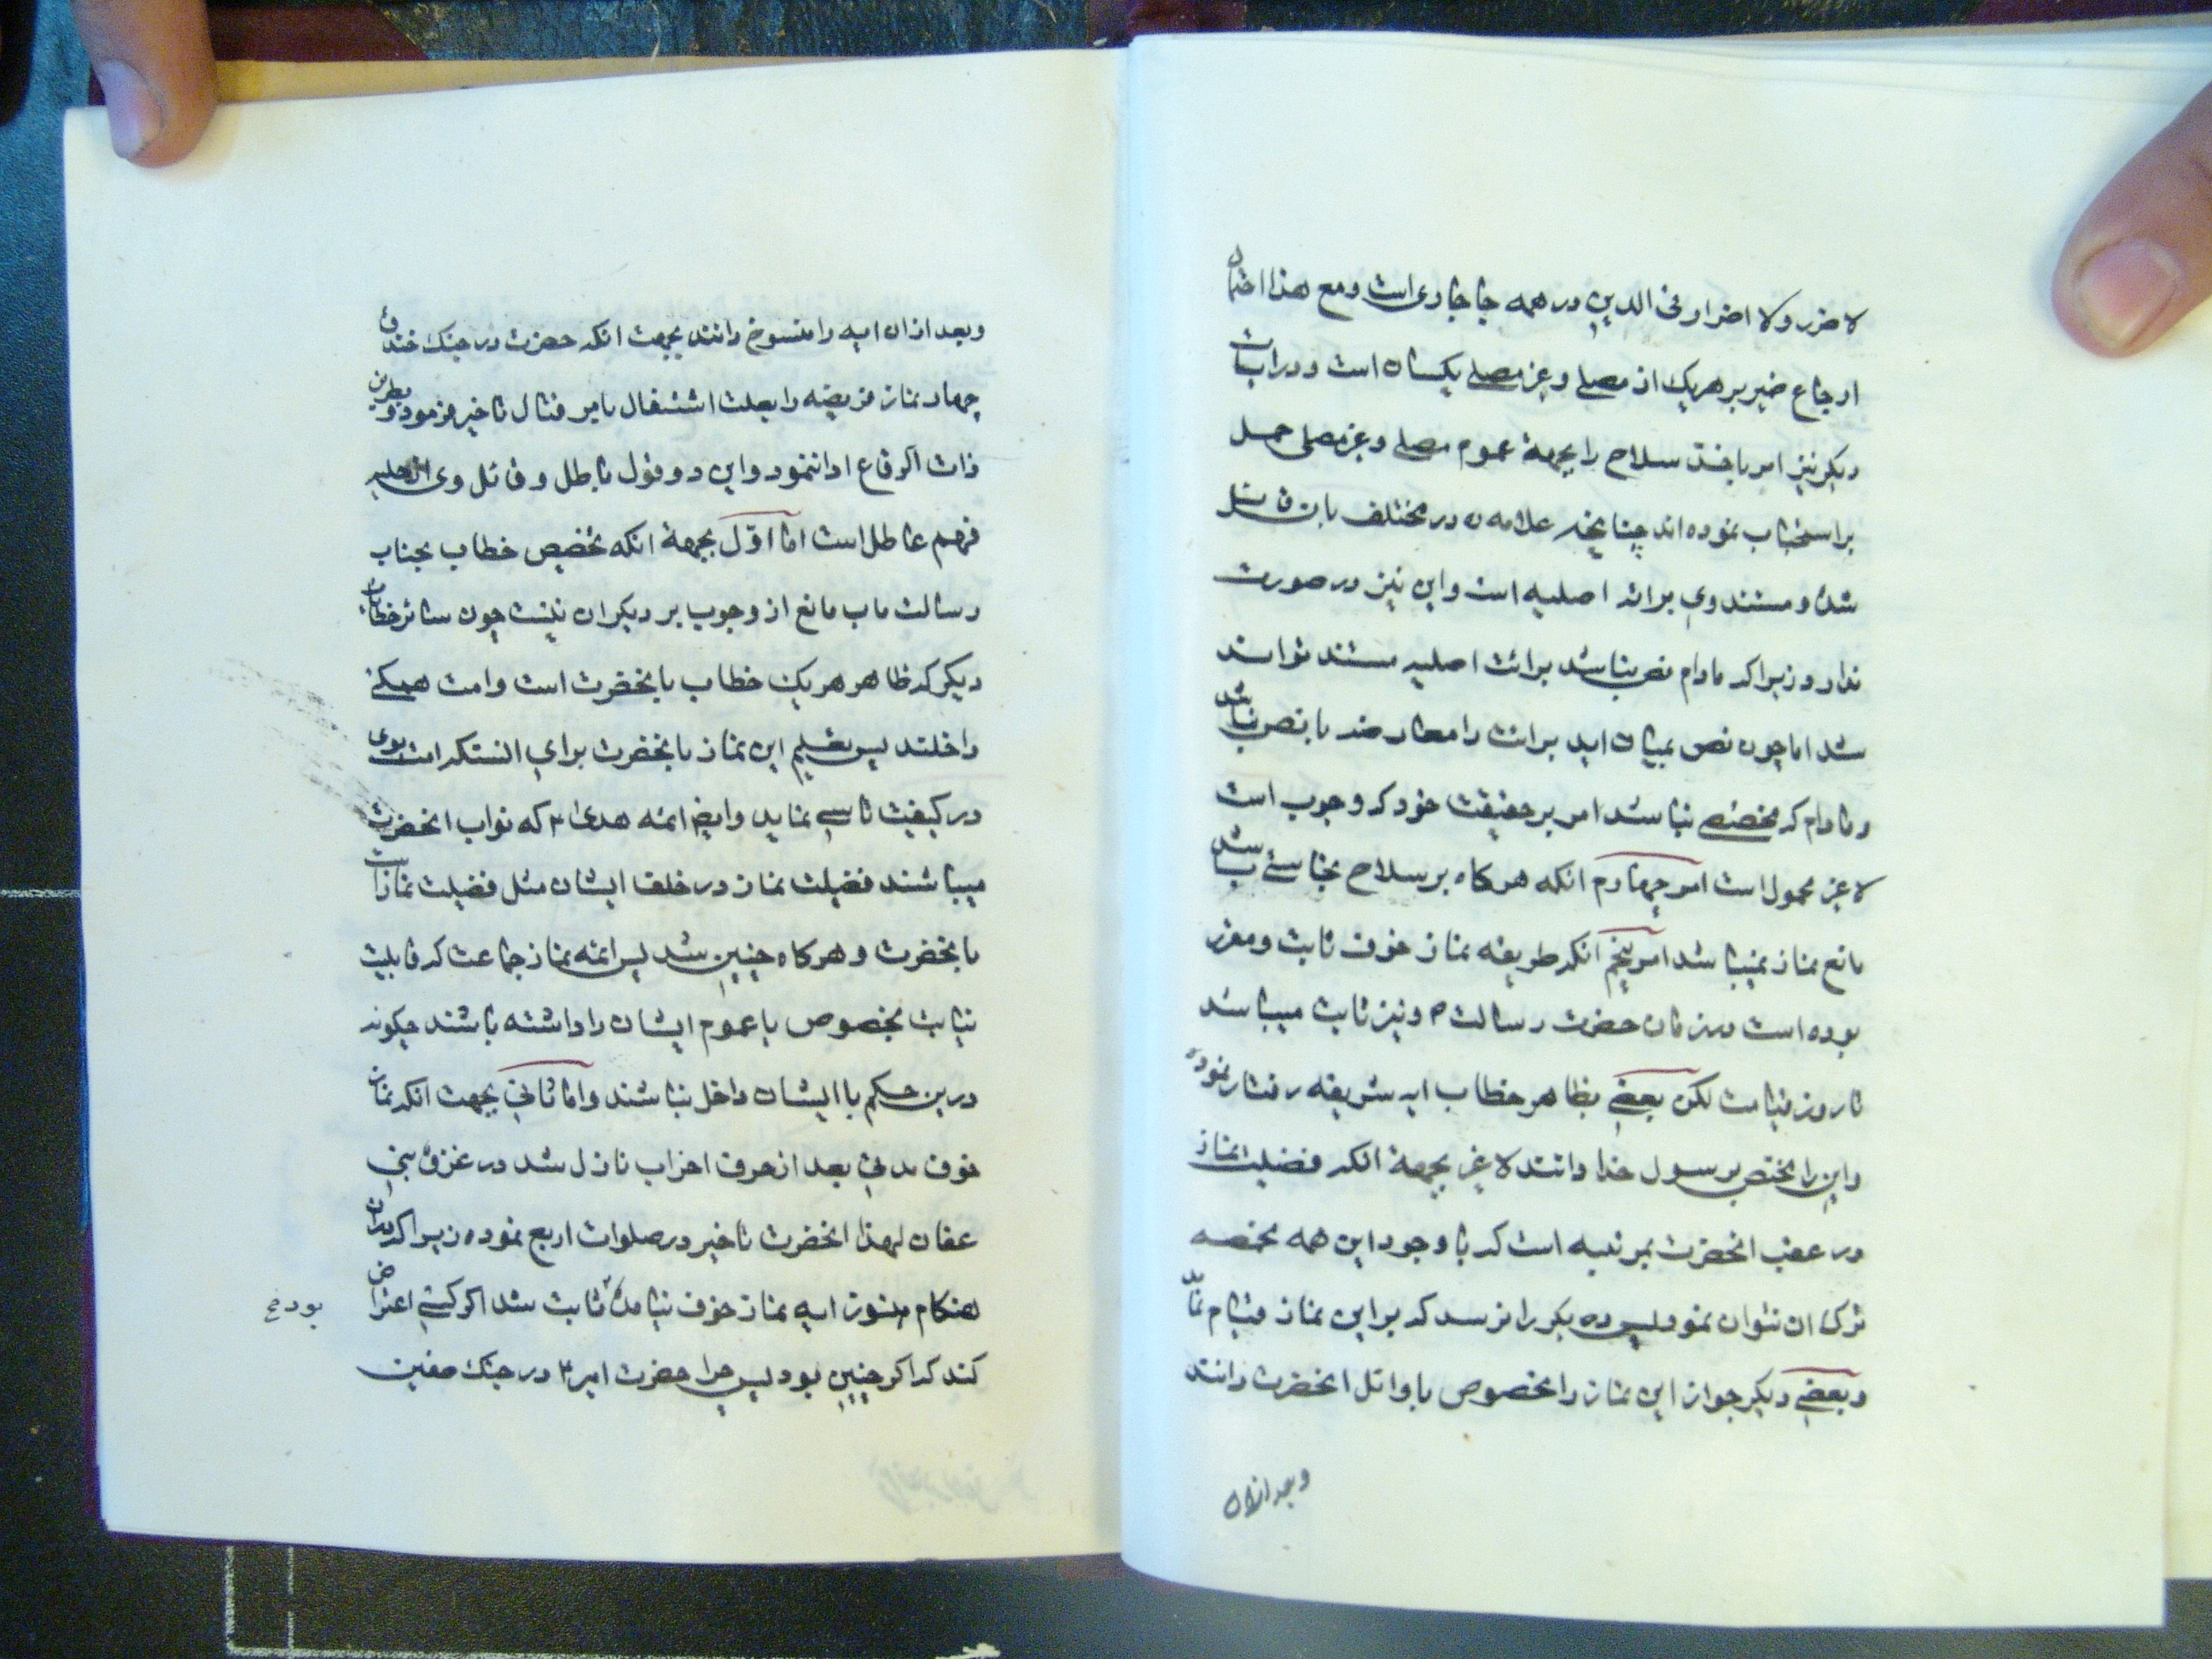 لا ضرر ولا اضرار فی الدین در همه جا جاری است و مع هذا احتمال
ارجاع ضمیر بر هریک از مصلی و غیر مصلے یکسان است و در ایات
دیگر نیز امر باخذ سلاح را بجهة عموم مصلے و غیر مصلی حمل
بر استحباب نموده اند چنانچه علامه ره در مختلف بان قائل
شده و مستند وی برائة اصلیه است و این نیز در صورت
ندارد زیرا که مادام نص نباشد برائت اصلیه مستند تواند
شد اما چون نص بمیان اید برائت را معارضه با نص نباشد
و مادام که مخصصے نباشد امر بر حقیقت خود که وجوب است
لا غیر محمول است امر چهارم انکه هرکاه بر سلاح نجاستے باشد
مانع نماز نمیباشد امر پنجم انکه طریقه نماز خوف ثابت و مقرر
بوده است در زمان حضرت رسالت ص و نیز ثابت میباشد
تا روز قیامت لکن بعضے بظاهر خطاب ایه شریفه رفتار نموده
و این را مختص برسول خدا دانند لا غیر بجهة انکه فضیلت نماز
در عقب انحضرت بمرتبه است که با وجود این همه مخمصه
ترک ان نتوان نمود پس دیگر را نرسد که بر این نماز قیام نماید
و بعضے دیگر جواز این نماز را مخصوص باوائل انحضرت دانند
وبعد ازان
وبعد ازان ایه را منسوخ دانند بجهت انکه حضرت در جنک خندق
چهار نماز فریضه را بعلت اشتغال بامر قتال تاخیر فرمود و بطریق
ذات الرقاع ادا ننمود و این دو قول باطل و قائل وی از حلیه
فهم عاطل است اما اوّل بجهة انکه تخصیص خطاب بجناب
رسالت ماب مانع از وجوب بر دیکران نیست چون سائر خطابات
دیکر که ظاهر هریک خطاب بانحضرت است و امت همکے
داخلند پس تعلیم این نماز بانحضرت برای انستکه امت بوی
در کیفیت تاسے نماید و ایضا ائمه هدی ع که نواب انحضرت
میباشند فضیلت نماز در خلف ایشان مثل فضیلت نماز است
بانحضرت و هرکاه چنین شد پس ائمه نماز جماعت که قابلیت
نیابت بخصوص یا عموم ایشان را داشته باشند چکونه
درین حکم با ایشان داخل نباشند و اما ثانی بجهت انکه نماز
خوف بعد از حرف احزاب نازل شد در غزوه بنی
عفان لهذا انحضرت تاخیر در صلوات اربع نموده زیرا که دران
هنکام هنوز ایه نماز خوف نیامده ثابت شد اکر کسے اعتراض
بود خ
کند که اکر چنین بود پس چرا حضرت امیر ع در جنک صفین